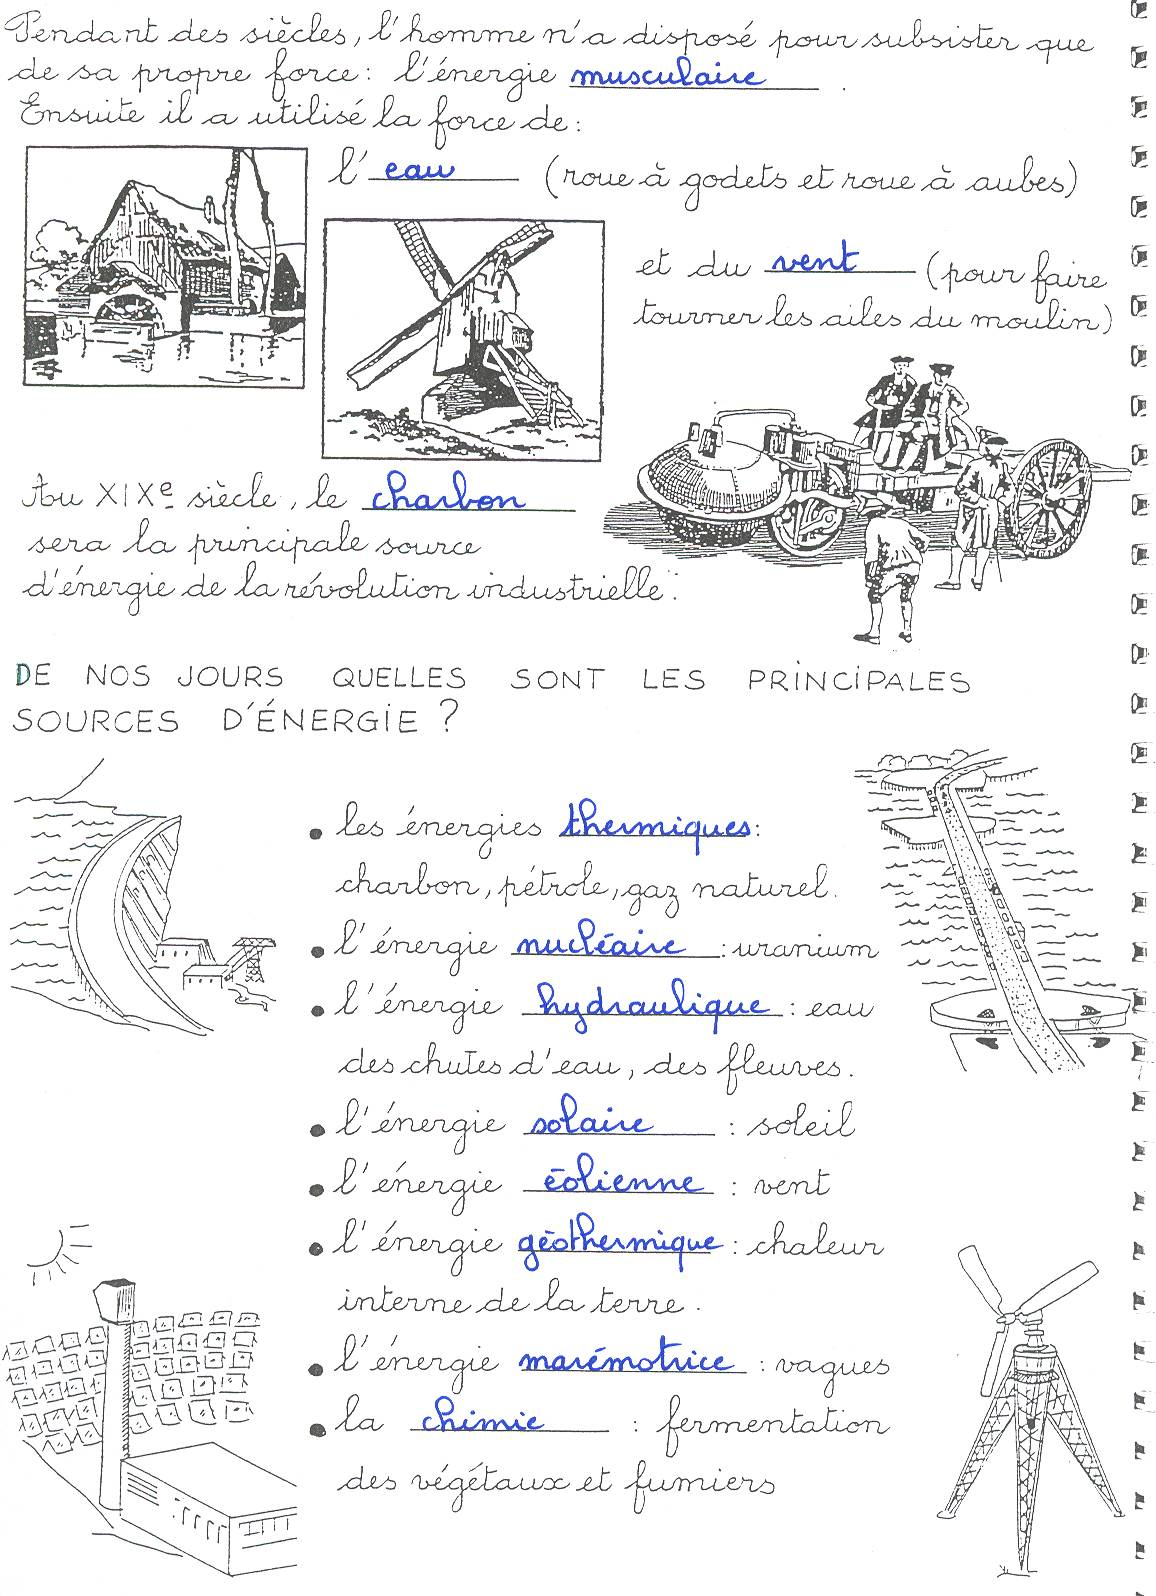 Pendant des siècles, l'homme n'a disposé pour subsister que
de sa propre force: l'énergie musculaire .
Ensuite il a utilisé la force de:
l' eau (roue à godets et roue à aubes)
et du vent (pour faire
tourner les ailes du moulin)
Au XIXe siècle, le charbon
sera la principale source
d'énergie de la révolution industrielle.
DE NOS JOURS QUELLES SONT LES PRINCIPALES
SOURCES D'ÉNERGIE ?
• les énergies thermiques:
charbon, pétrole, gaz naturel.
• l'énergie nucléaire : uranium
• l'énergie hydraulique : eau
des chutes d'eau, des fleuves.
• l'énergie solaire : soleil
• l'énergie éolienne : vent
• l'énergie géothermique : chaleur
interne de la terre.
• l'énergie marémotrice : vagues
• la chimie : fermentation
des végétaux et fumiers